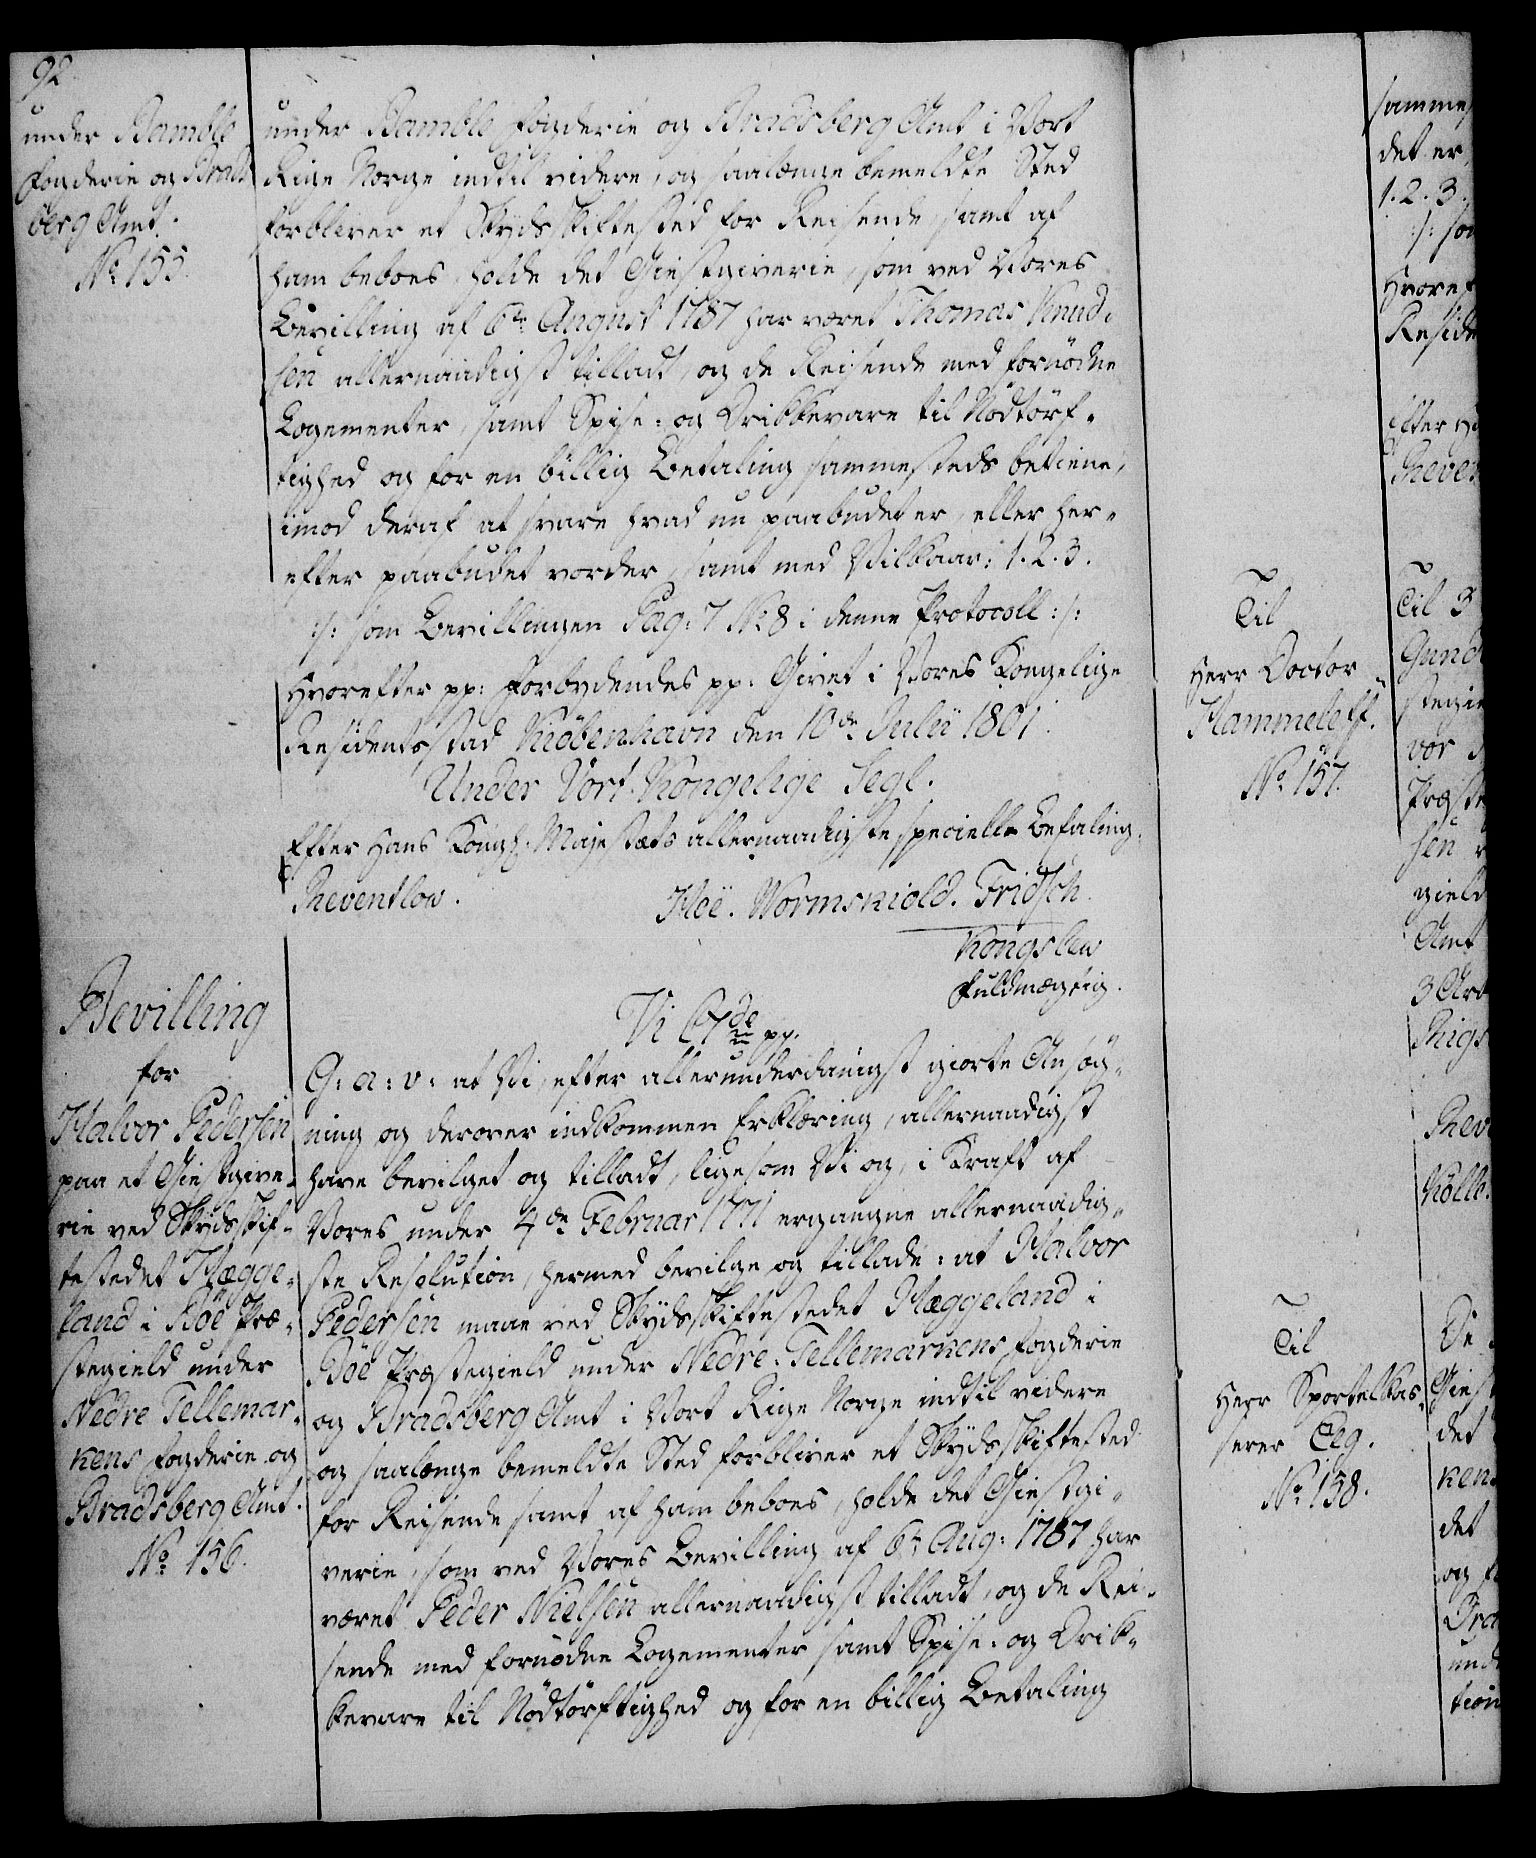 92
under Bamble
Fogderie og Brads
berg Amt.
No 155.
under Bamble Fogderie og Bradsberg Amt i Vort
Rige Norge indtil videre, og saalænge bemeldte Sted
forbliver et Skydsskiftested for Reisende, samt af
ham beboes, holde det Giestgiverie, som ved Vores
Bevilling af 6te August 1787 har været Thomas Knud-
sen allernaadigst tilladt, og de Reisende med fornødne
Logementer, samt Spise- og Drikkevare til Nødtørf-
tighed og for en billig Betaling sammesteds betiene,
imod deraf at svare hvad nu paabudet er, eller her-
efter paabudet vorder, samt med Vilkaar: 1. 2. 3.
:/: som Bevillingen Pag: 7 No 8 i denne Protocoll :/:
Hvorefter pp: Forbydendes pp: Givet i Vores Kongelige
Residentsstad Kiöbenhavn den 10de Julii 1801.
Under Vort Kongelige Segl.
Efter Hans Kongl. Majestæts allernaadigste specielle Befaling.
Reventlow. Höe. Wormskiold. Fridsch.
Kongslew
Fuldmægtig.
Bevilling
for
Halvor Pedersen
paa et Giestgive-
rie ved Skydsskif-
testedet Hægge-
land i Böe Præ-
stegield under
Nedre Tellemar-
kens Fogderie og
Bradsberg Amt.
No 156.
Vi C 7de pp.
G: a: v: at Vi, efter allerunderdanigst giorte Ansøg-
ning og derover indkommen Erklæring, allernaadigst
have bevilget og tilladt, ligesom Vi og, i Kraft af
Vores under 4de Februar 1771 ergangne allernaadig-
ste Resolution, hermed bevilge og tillade: at Halvor
Pedersen maae ved Skydsskiftestedet Hæggeland i
Böe Præstegield under Nedre-Tellemarkens Fogderie
og Bradsberg Amt i Vort Rige Norge indtil videre
og saalænge bemeldte Sted forbliver et Skydsskiftested
for Reisende samt af ham beboes, holde det Giestgi-
verie, som ved Vores Bevilling af 6te Aug: 1787 har
været Peder Nielsen allernaadigst tilladt, og de Rei-
sende med fornødne Logementer samt Spise- og Drik-
kevare til Nødtørftighed og for en billig Betaling
Til
Herr Doctor
Hammeleff.
No 157.
Til
Herr Sportelkas-
serer Eeg.
No 158.
det er
1. 2. 3.
Til
vor
sen
Amt
De
det
det
og